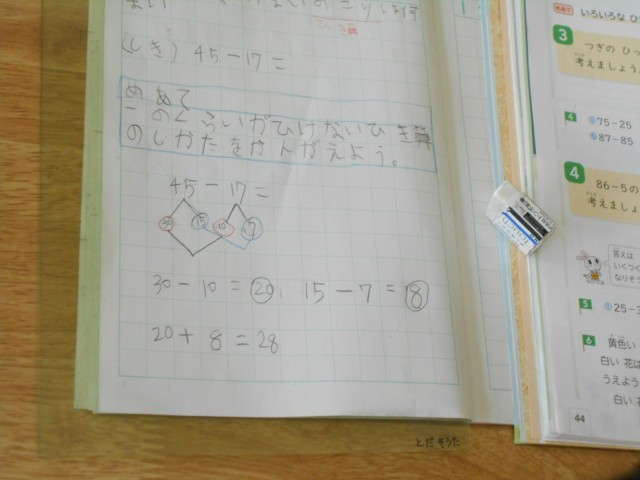 (しき) 45-17=
めあて
一のくらいがひけないひき算
のしかたをかんがえよう。
45-17=
30 15 10 7
30-10=20 15-7=8
20+8=28
とだ そうた
いろいろな ひ
3 つぎの ひっ
考えましょう
4 ①75-25
87-85
4 86-5の
考えましょ
答えは
いくつく
なりそう
5 ①25-3
6 黄色い
白い 花は
うえよう
白い 花
44